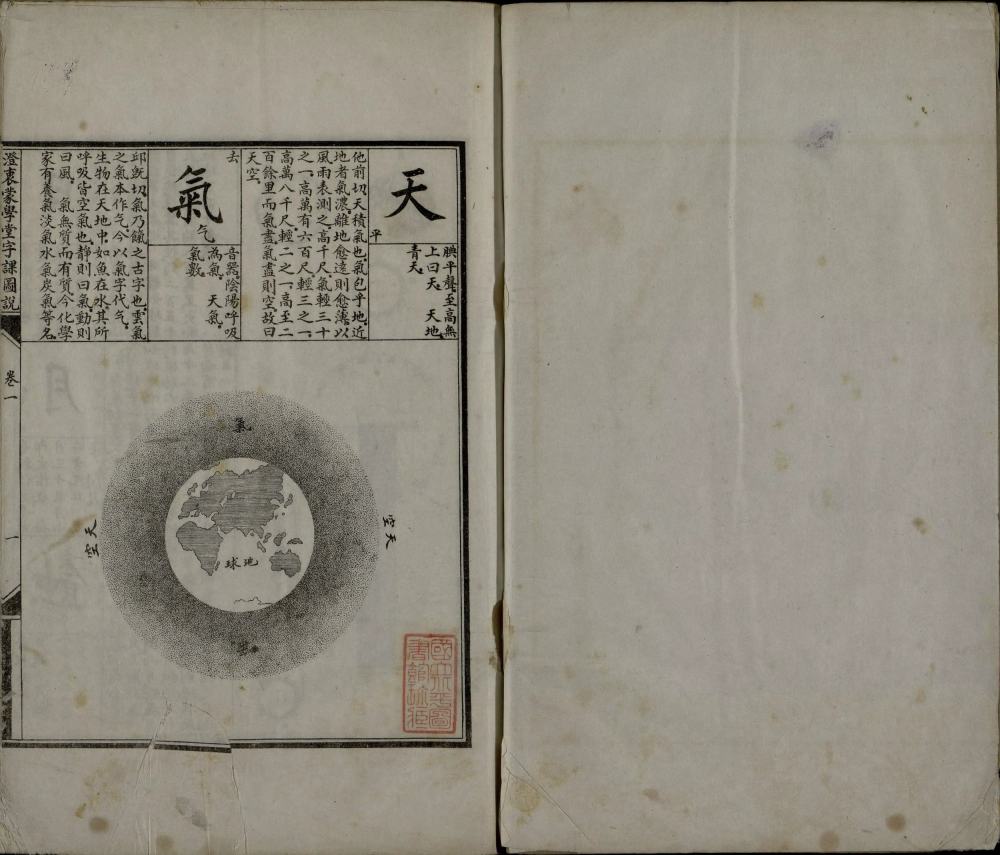 天
平
腆平聲至高無
上曰天 天地
青天
他前切天積氣也氣包乎地近
地者氣濃離地愈遠則愈薄以
風雨表測之高千尺氣輕三十
之一高萬有六百尺輕三之一
高萬八千尺輕二之一高至二
百餘里而氣盡氣盡則空故曰
天空
氣
气
去
音器陰陽呼吸
為氣 天氣
氣數
邱旣切氣乃餼之古字也雲氣
之氣本作气今以氣字代气
生物在天地中如魚在水其所
呼吸皆空氣也靜則曰氣動則
曰風 氣無質而有質今化學
家有養氣淡氣水氣炭氣等名
澄衷蒙學堂字課圖說
卷一
一
氣
天空
天空
地球
氣
國立北平圖
書館珍藏